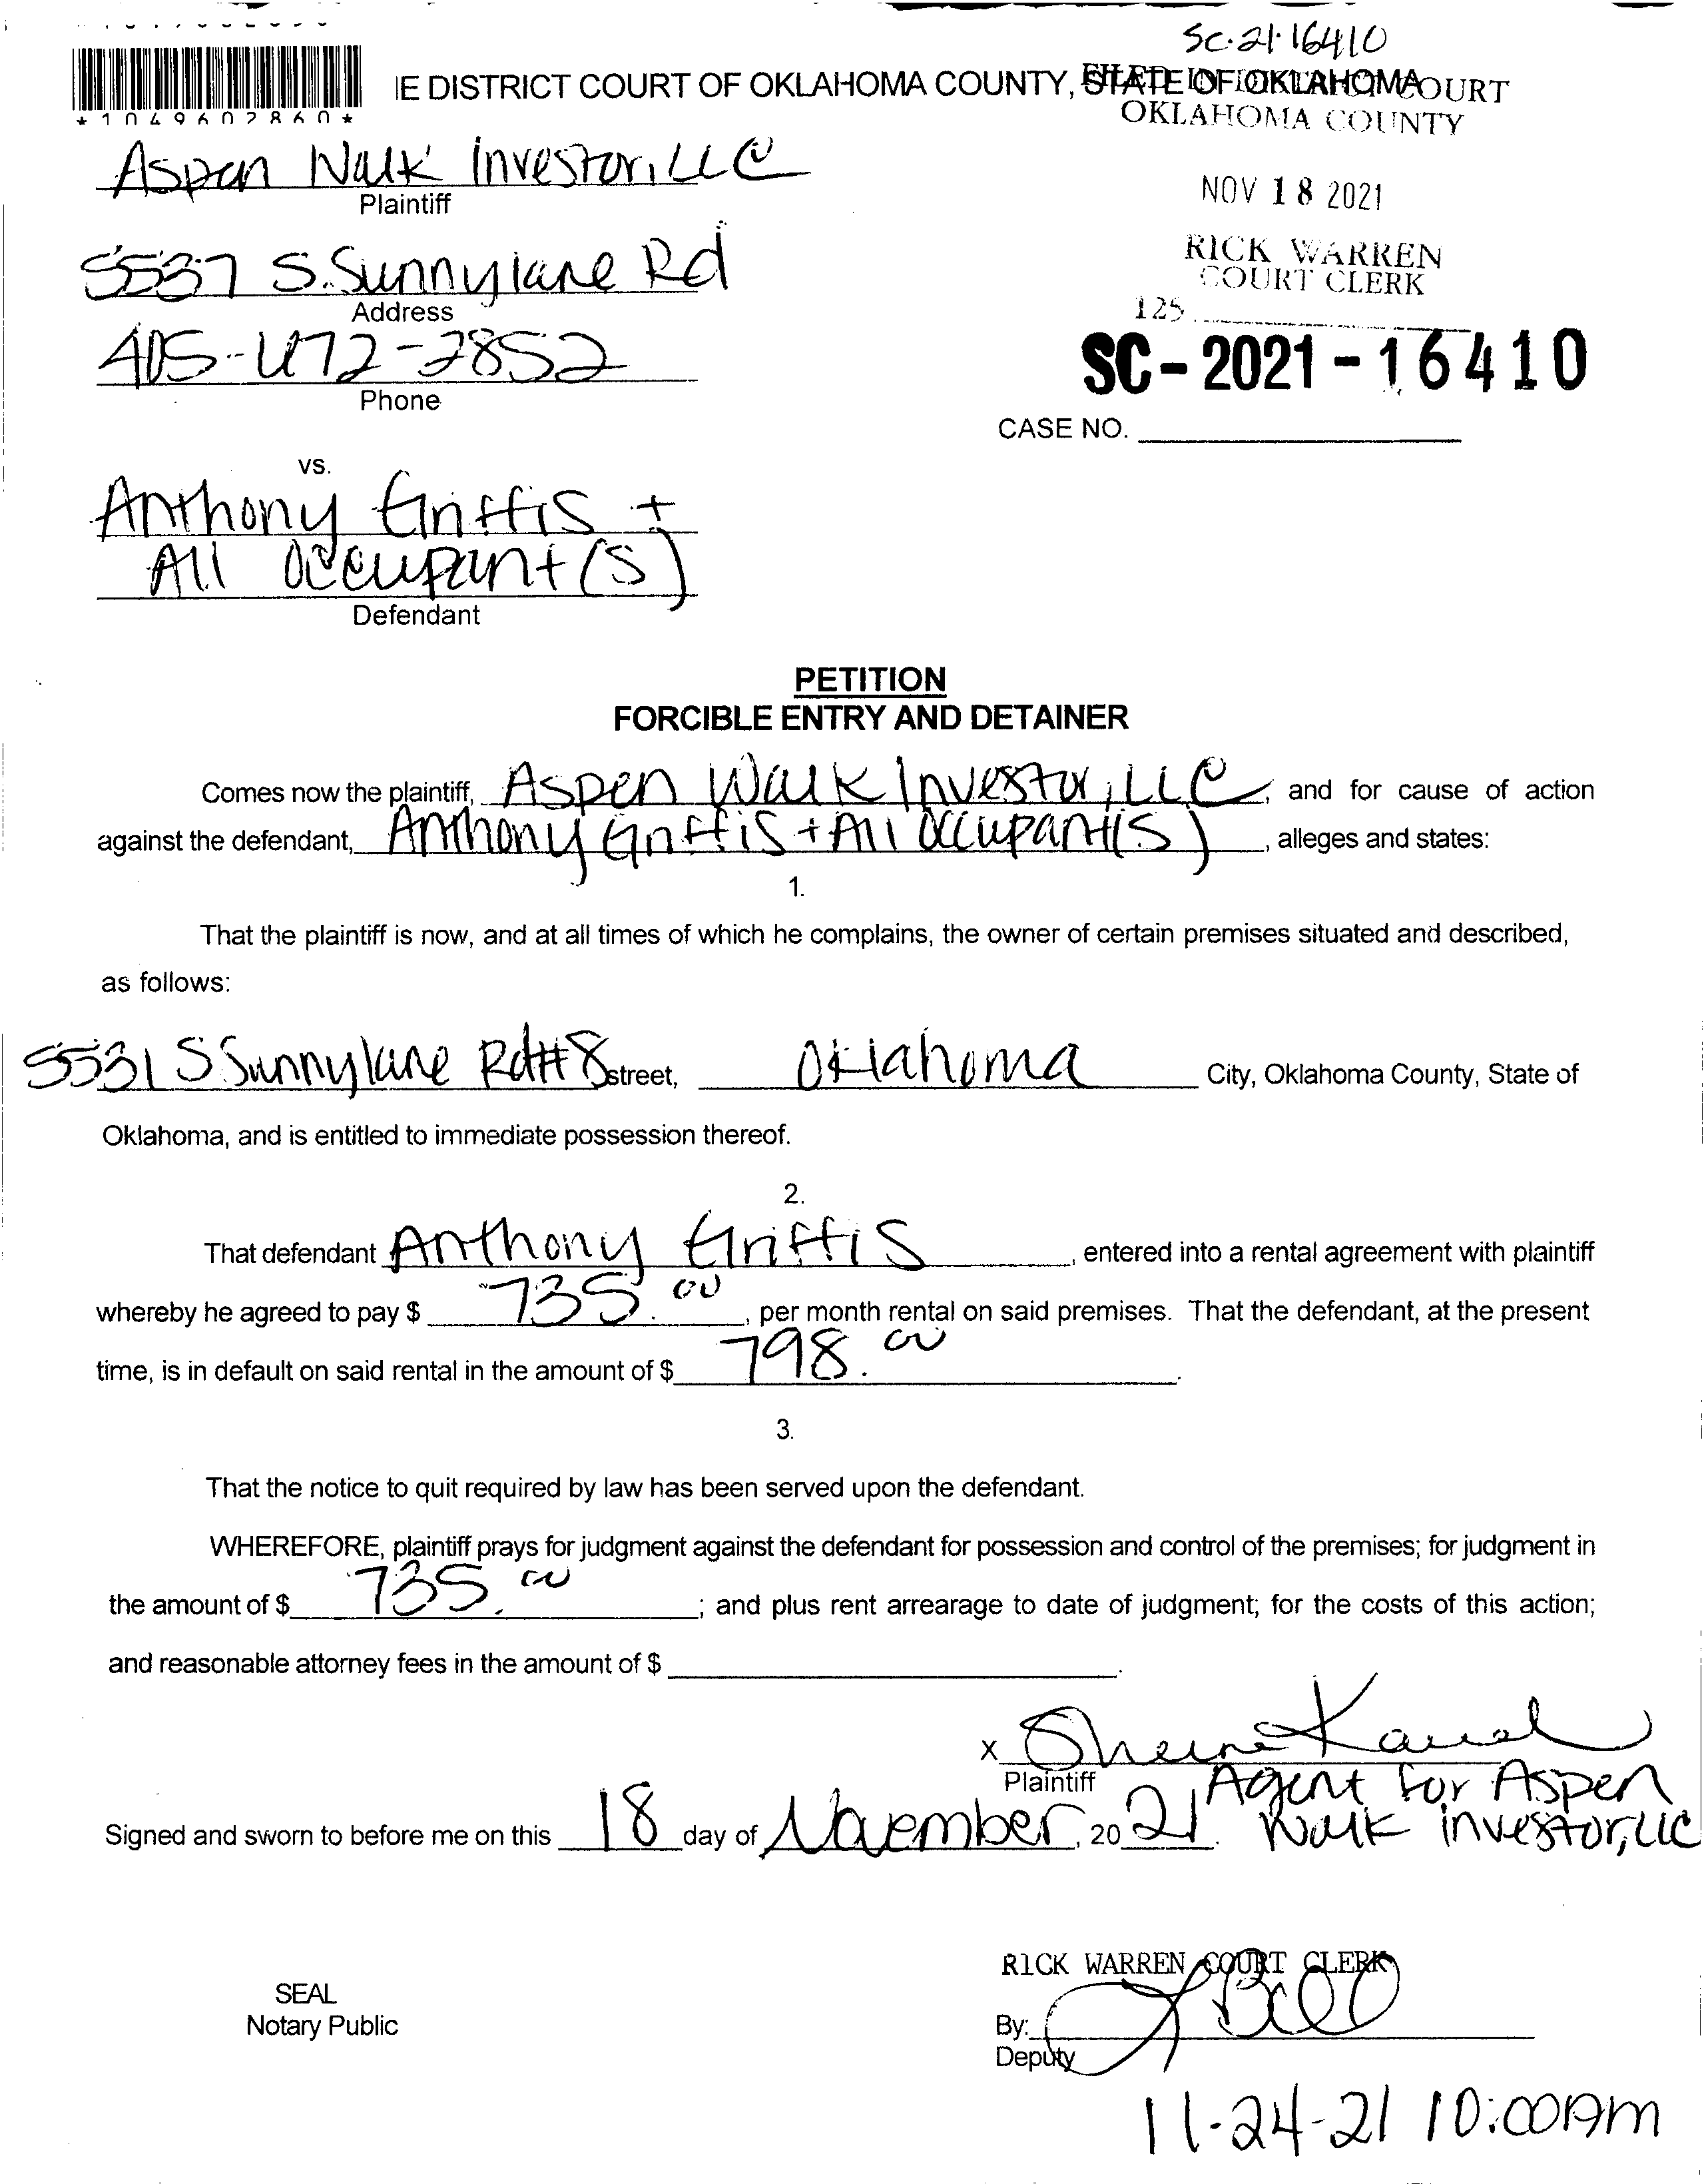 SC-21-16410
*1049602860*
IE DISTRICT COURT OF OKLAHOMA COUNTY, STATE OF OKLAHOMA
FILED IN DISTRICT COURT
OKLAHOMA COUNTY
Aspen Walk Investor, LLC
Plaintiff
NOV 18 2021
5537 S. Sunnylane Rd
Address
RICK WARREN
COURT CLERK
125
405-672-2852
Phone
SC-2021-16410
CASE NO.
vs.
Anthony Griffis +
All Occupant(s)
Defendant
PETITION
FORCIBLE ENTRY AND DETAINER
Comes now the plaintiff, Aspen Walk Investor, LLC, and for cause of action
against the defendant, Anthony Griffis + All Occupant(s), alleges and states:
1.
That the plaintiff is now, and at all times of which he complains, the owner of certain premises situated and described,
as follows:
5531 S Sunnylane Rd #8 street, Oklahoma City, Oklahoma County, State of
Oklahoma, and is entitled to immediate possession thereof.
2.
That defendant Anthony Griffis, entered into a rental agreement with plaintiff
whereby he agreed to pay $ 735.00, per month rental on said premises. That the defendant, at the present
time, is in default on said rental in the amount of $ 798.00.
3.
That the notice to quit required by law has been served upon the defendant.
WHEREFORE, plaintiff prays for judgment against the defendant for possession and control of the premises; for judgment in
the amount of $ 735.00; and plus rent arrearage to date of judgment; for the costs of this action;
and reasonable attorney fees in the amount of $ .
x
Plaintiff Agent for Aspen
Walk investor, LLC
Signed and sworn to before me on this 18 day of November, 2021.
RICK WARREN COURT CLERK
SEAL
Notary Public
By:
Deputy
11-24-21 10:00AM